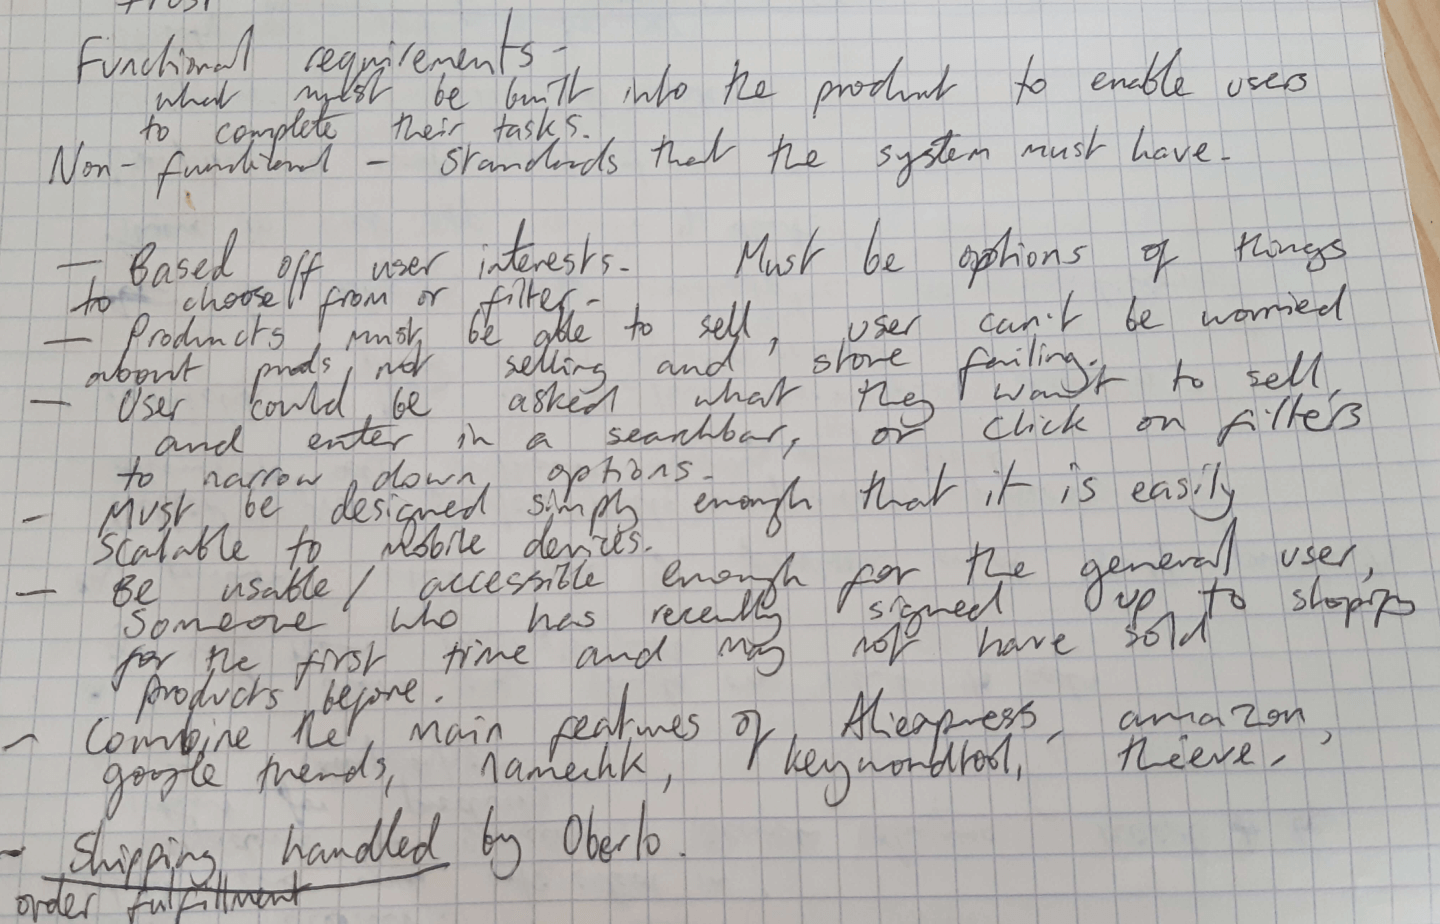 Functional requirements -
what must be built into the product to enable users
to complete their tasks.
Non-functional - standards that the system must have.
- Based off user interests. Must be options of things
to choose from or filter.
- Products must be able to sell, user can't be worried
about prods not selling and store failing.
- User could be asked what they want to sell,
and enter in a searchbar, or click on filters
to narrow down options.
- Must be designed simply enough that it is easily
scalable to mobile devices.
- Be usable / accessible enough for the general user,
someone who has recently signed up to shopify
for the first time and may not have sold
products before.
- Combine the main features of Aliexpress, amazon,
google trends, namechk, keywordtool, thieve.
- Shipping handled by Oberlo.
order fulfillment